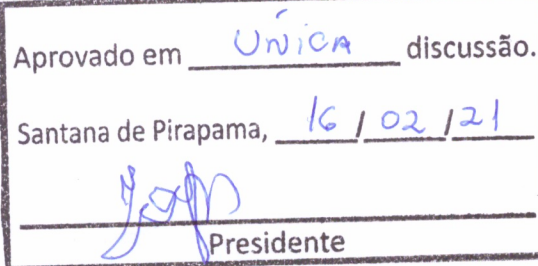 Aprovado em ÚNiCA discussão.
Santana de Pirapama, 16 / 02 / 21
Presidente